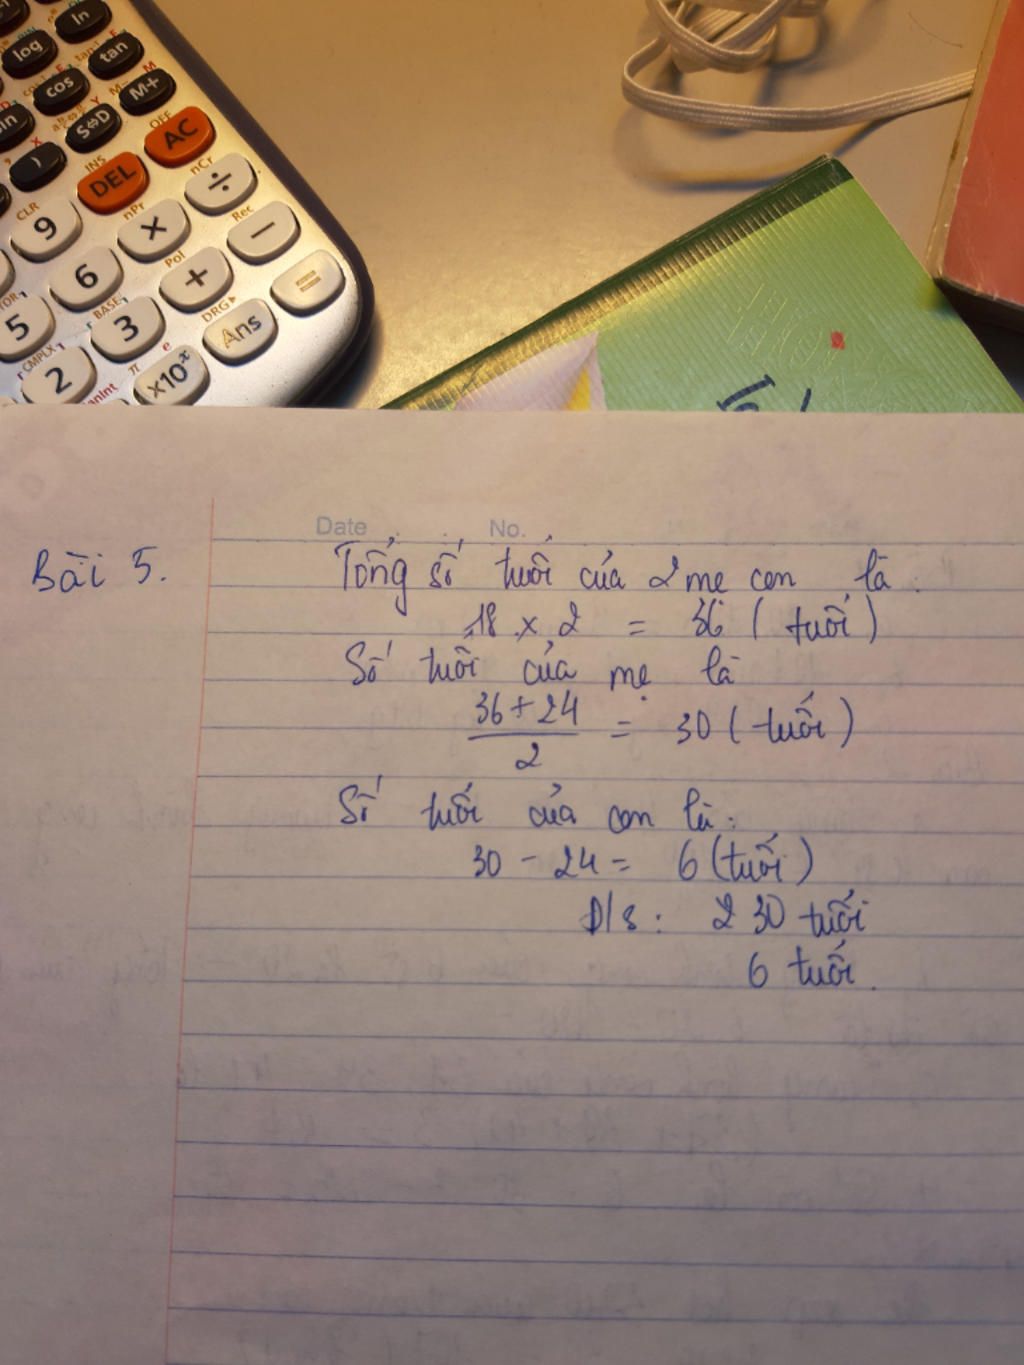 ln
log
tan
cos
M+
S⇔D
OFF
AC
INS
DEL
nCr
÷
CLR
9
nPr
×
Rec
−
6
Pol
+
=
5
BASE
3
DRG▸
Ans
CMPLX
2
π
e
×10ˣ
Date
No.
Bài 5.
Tổng số tuổi của 2 mẹ con là:
18 x 2 = 36 (tuổi)
Số tuổi của mẹ là
36 + 24
2
= 30 (tuổi)
Số tuổi của con là:
30 - 24 = 6 (tuổi)
Đ/s: 2 30 tuổi
6 tuổi.